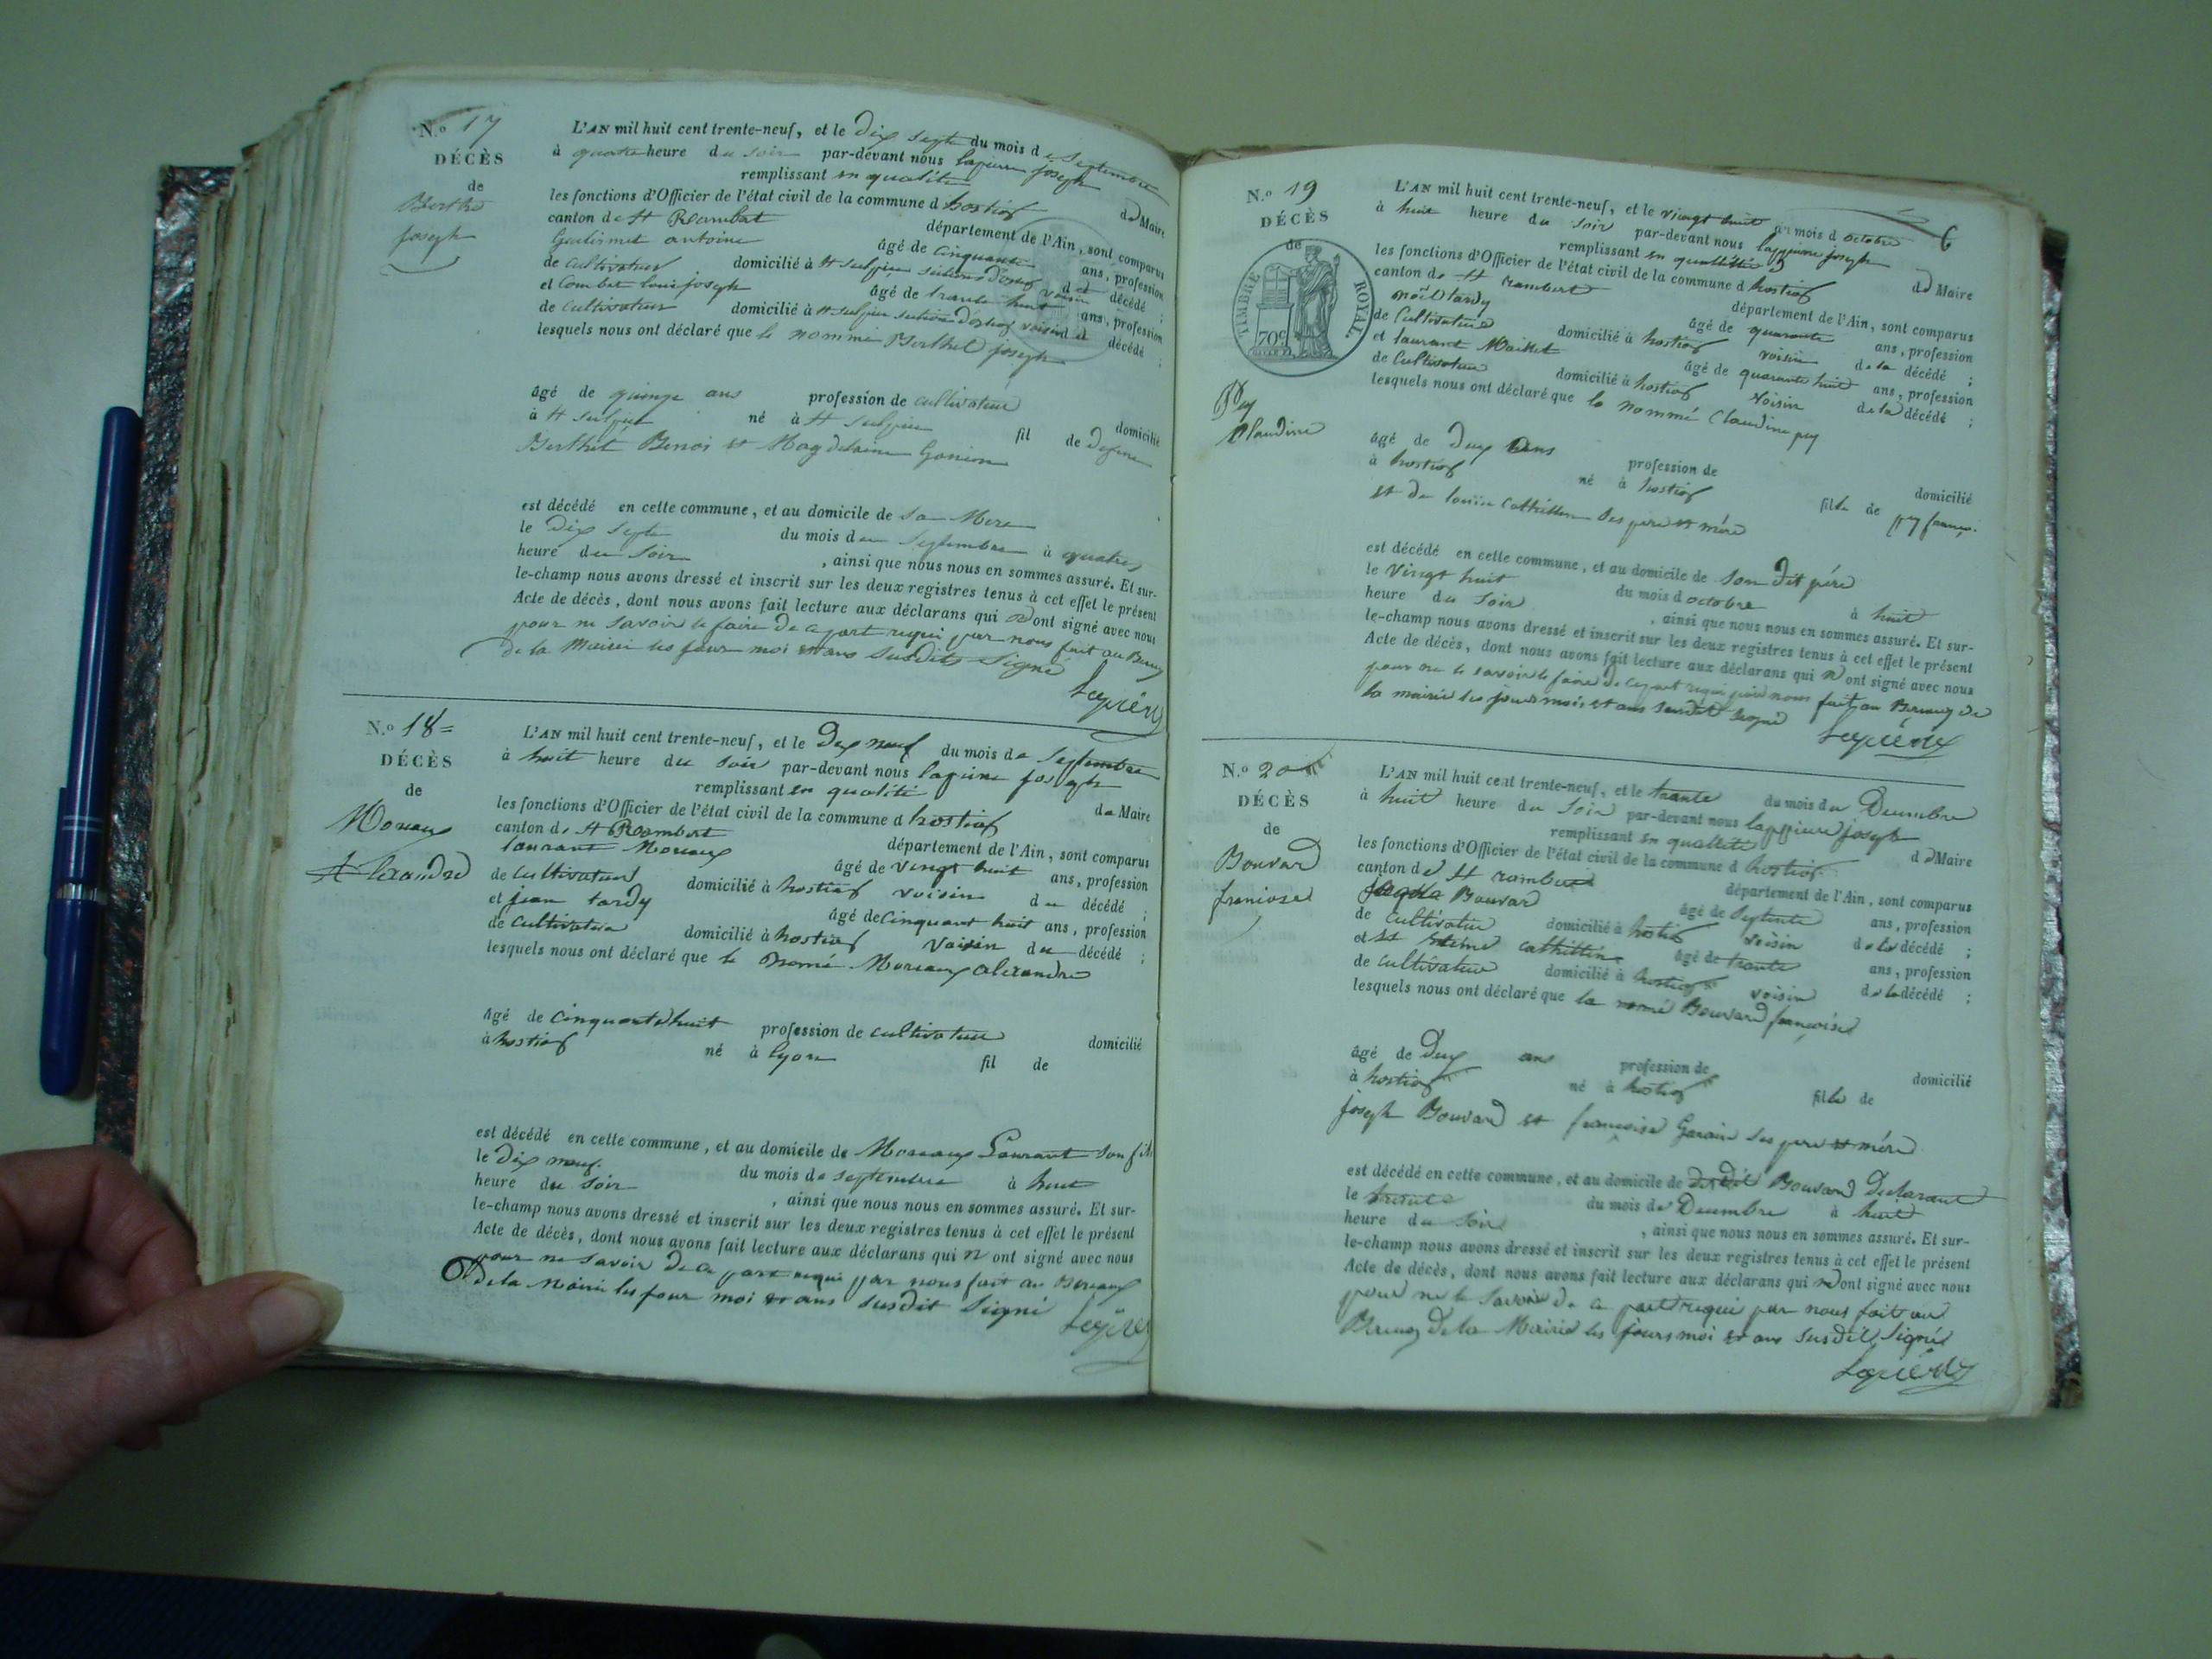 N.o 17
DÉCÈS
de
Berthet
joseph
L'AN mil huit cent trente-neuf, et le dix septe du mois de Septembre
à quatre heure du soir par-devant nous lapierre joseph
remplissant en qualité de Maire
les fonctions d'Officier de l'état civil de la commune d hostiaf
canton de St Rambert département de l'Ain, sont comparus
antoine âgé de cinquante ans, profession
de cultivateur domicilié à St sulpice voisin d décédé ;
et Combet louis joseph âgé de trante huit ans, profession
de cultivateur domicilié à St sulpice voisin d décédé ;
lesquels nous ont déclaré que le nommé Berthet joseph
âgé de quinze ans profession de cultivateur domicilié
à St sulpice né à St sulpice fil de Defun
Berthet Benoi et Magdelaine Gonin
est décédé en cette commune, et au domicile de sa Mere
le dix septe du mois de Septembre à quatre
heure du soir , ainsi que nous nous en sommes assuré. Et sur-
le-champ nous avons dressé et inscrit sur les deux registres tenus à cet effet le présent
Acte de décès, dont nous avons fait lecture aux déclarans qui n'ont signé avec nous
pour ne savoir le faire de ce part requi par nous fait au Bureaux
de la Mairie les jour moi et ans susdit Signé
Lapierre
N.o 18=
DÉCÈS
de
Moreaux
Alexandre
L'AN mil huit cent trente-neuf, et le dix neuf du mois de Septembre
à huit heure du soir par-devant nous lapierre joseph
remplissant en qualité de Maire
les fonctions d'Officier de l'état civil de la commune d hostiaf
canton de St Rambert département de l'Ain, sont comparus
laurant Moreaux âgé de vingt huit ans, profession
de cultivateur domicilié à hostiaf voisin du décédé ;
et jean tardy âgé de cinquant huit ans, profession
de cultivateur domicilié à hostiaf voisin du décédé ;
lesquels nous ont déclaré que le nomé Moreaux alexandre
âgé de cinquante huit profession de cultivateur domicilié
à hostiaf né à lyon fil de
est décédé en cette commune, et au domicile de Moreaux Laurant son fils
le dix neuf du mois de septembre à huit
heure du soir , ainsi que nous nous en sommes assuré. Et sur-
le-champ nous avons dressé et inscrit sur les deux registres tenus à cet effet le présent
Acte de décès, dont nous avons fait lecture aux déclarans qui n ont signé avec nous
pour ne savoir de ce part requi par nous fait au Bureaux
de la Mairie les jour moi et ans susdit Signé
Lapierre
6
N.o 19
DÉCÈS
de
TIMBRE ROYAL
70c
Pey
Claudine
L'AN mil huit cent trente-neuf, et le vingt huit du mois d octobre
à huit heure du soir par-devant nous lappierre joseph
remplissant en quallitté de Maire
les fonctions d'Officier de l'état civil de la commune d hostiaf
canton de St rambert département de l'Ain, sont comparus
noël tardy âgé de quarante ans, profession
de Cultivateur domicilié à hostiaf voisin de la décédé ;
et laurant Maillet âgé de quarante huit ans, profession
de Cultivateur domicilié à hostiaf voisin de la décédé ;
lesquels nous ont déclaré que la nommé Claudine pey
âgé de deux ans profession de domicilié
à hostiaf né à hostiaf fille de pey françois
et de louise Cathillon ses pere et mére
est décédé en cette commune, et au domicile de son dit pére
le vingt huit du mois d octobre à huit
heure du soir , ainsi que nous nous en sommes assuré. Et sur-
le-champ nous avons dressé et inscrit sur les deux registres tenus à cet effet le présent
Acte de décès, dont nous avons fait lecture aux déclarans qui n ont signé avec nous
pour ne le savoir le faire de ce part requi par nous fait au Bureaux de
la mairie les jours mois et ans susdit signé
Lapierre
N.o 20
DÉCÈS
de
Bouvard
francoise
L'AN mil huit cent trente-neuf, et le trante du mois du Decembre
à huit heure du soir par-devant nous lappierre joseph
remplissant en quallité de Maire
les fonctions d'Officier de l'état civil de la commune d hostiaf
canton de St rambert département de l'Ain, sont comparus
Bouvard âgé de septente ans, profession
de cultivateur domicilié à hostiaf voisin de la décédé ;
et cathillon âgé de trante ans, profession
de cultivateur domicilié à hostiaf voisin de la décédé ;
lesquels nous ont déclaré que la nomé Bouvard françoise
âgé de deux ans profession de domicilié
à hostiaf né à hostiaf fille de
joseph Bouvard et francoise Garin ses pere et mére
est décédé en cette commune, et au domicile de dudit Bouvard declarant
le trante du mois de Decembre à huit
heure du soir , ainsi que nous nous en sommes assuré. Et sur-
le-champ nous avons dressé et inscrit sur les deux registres tenus à cet effet le présent
Acte de décès, dont nous avons fait lecture aux déclarans qui n'ont signé avec nous
pour ne le savoir de ce part requi par nous fait au
Bureaux de la Mairie les jours moi et ans susdit Signé
Lapierre